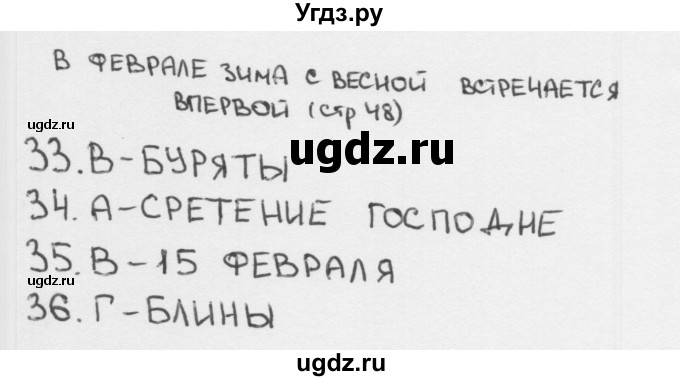 Угдз.ру
В ФЕВРАЛЕ ЗИМА С ВЕСНОЙ ВСТРЕЧАЕТСЯ
ВПЕРВОЙ (стр 48)
ugdz.ru
ugdz.ru
33. В-БУРЯТЫ
34. А-СРЕТЕНИЕ ГОСПОДНЕ
35. В-15 ФЕВРАЛЯ
ugdz.ru
36. Г-БЛИНЫ
ugdz.ru